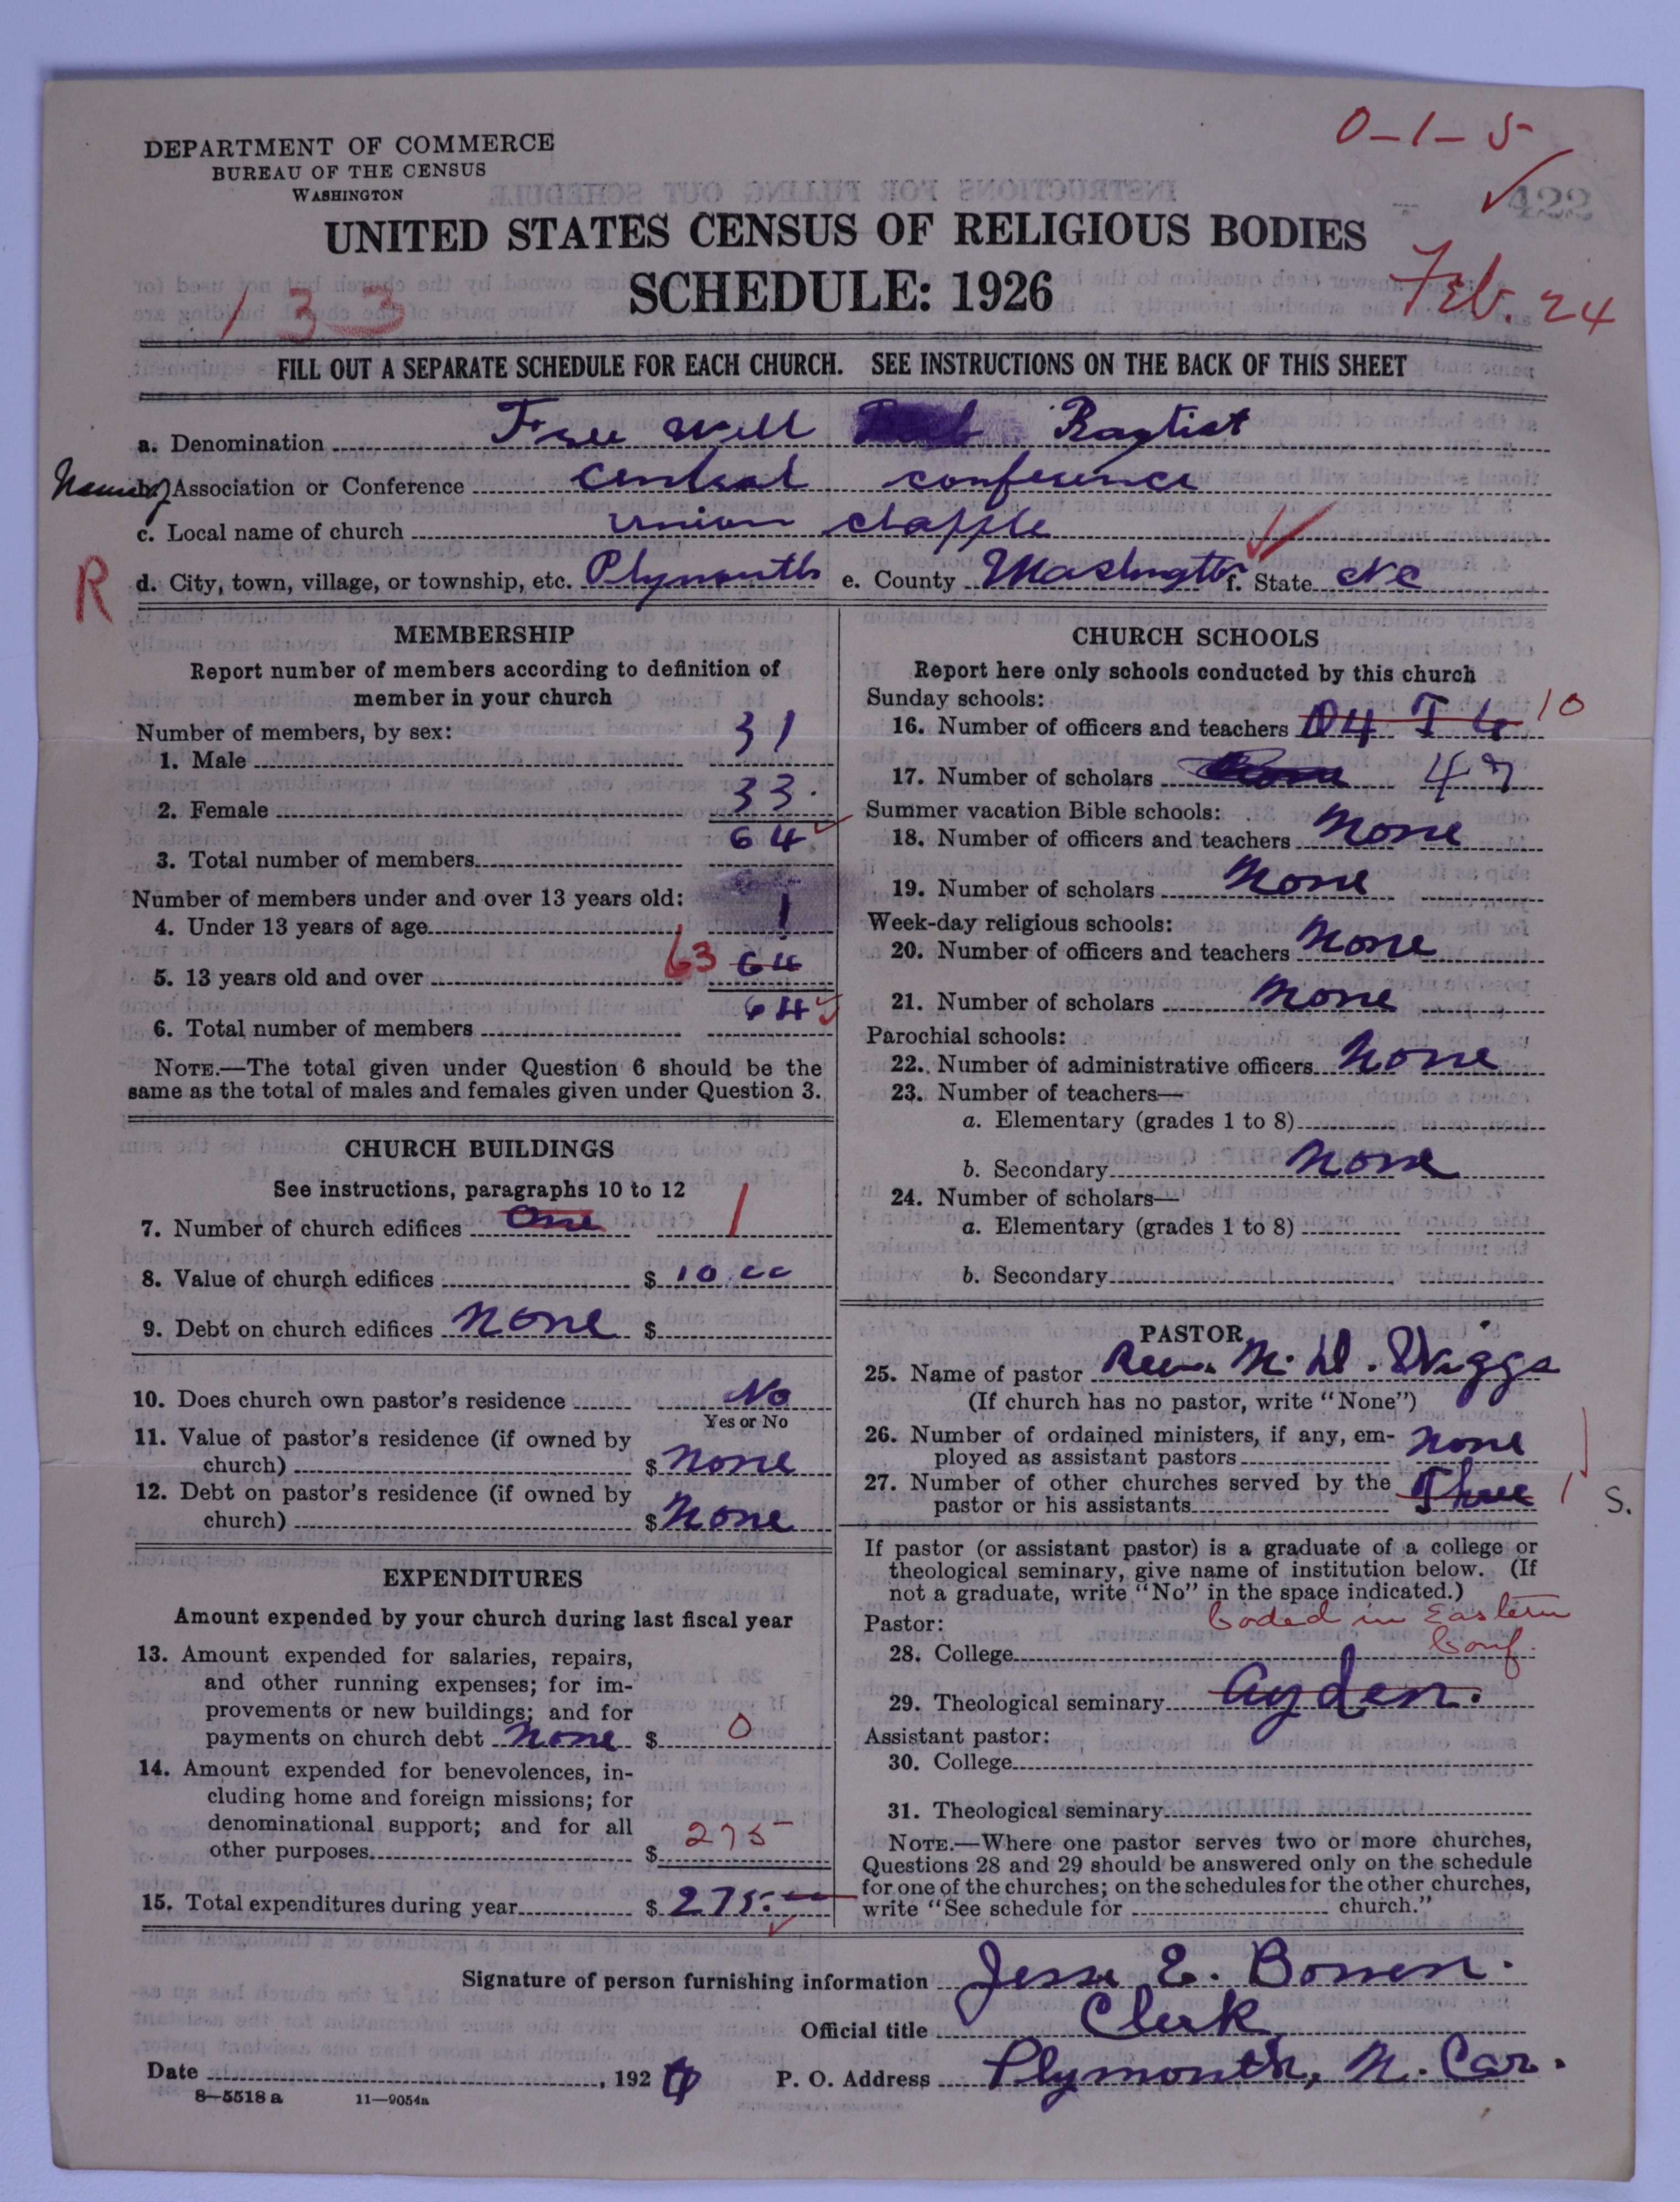 0-1-5
DEPARTMENT OF COMMERCE
BUREAU OF THE CENSUS
WASHINGTON
422
UNITED STATES CENSUS OF RELIGIOUS BODIES
SCHEDULE: 1926
133
Feb. 24
FILL OUT A SEPARATE SCHEDULE FOR EACH CHURCH. SEE INSTRUCTIONS ON THE BACK OF THIS SHEET
a. Denomination Free Will Baptist
Name of b. Association or Conference Central conference
c. Local name of church Union chapple
R d. City, town, village, or township, etc. Plymouth e. County Washington f. State NC
MEMBERSHIP
Report number of members according to definition of
member in your church
Number of members, by sex:
1. Male 31
2. Female 33.
3. Total number of members 64
Number of members under and over 13 years old:
4. Under 13 years of age 1
5. 13 years old and over 63 64
6. Total number of members 64
NOTE.—The total given under Question 6 should be the
same as the total of males and females given under Question 3.
CHURCH BUILDINGS
See instructions, paragraphs 10 to 12
7. Number of church edifices One 1
8. Value of church edifices $ 10.00
9. Debt on church edifices None $
10. Does church own pastor's residence No
Yes or No
11. Value of pastor's residence (if owned by
church) $ None
12. Debt on pastor's residence (if owned by
church) $ None
EXPENDITURES
Amount expended by your church during last fiscal year
13. Amount expended for salaries, repairs,
and other running expenses; for im-
provements or new buildings; and for
payments on church debt None $ 0
14. Amount expended for benevolences, in-
cluding home and foreign missions; for
denominational support; and for all
other purposes $ 275
15. Total expenditures during year $ 275.
CHURCH SCHOOLS
Report here only schools conducted by this church
Sunday schools:
16. Number of officers and teachers O 4 T 6 10
17. Number of scholars 47
Summer vacation Bible schools:
18. Number of officers and teachers None
19. Number of scholars None
Week-day religious schools:
20. Number of officers and teachers None
21. Number of scholars None
Parochial schools:
22. Number of administrative officers None
23. Number of teachers—
a. Elementary (grades 1 to 8)
b. Secondary None
24. Number of scholars—
a. Elementary (grades 1 to 8)
b. Secondary
PASTOR
25. Name of pastor Rev. M. D. Wiggs
(If church has no pastor, write "None")
26. Number of ordained ministers, if any, em-
ployed as assistant pastors None
27. Number of other churches served by the
pastor or his assistants Three 1 S.
If pastor (or assistant pastor) is a graduate of a college or
theological seminary, give name of institution below. (If
not a graduate, write "No" in the space indicated.)
Coded in Eastern
Conf.
Pastor:
28. College
29. Theological seminary Ayden.
Assistant pastor:
30. College
31. Theological seminary
NOTE.—Where one pastor serves two or more churches,
Questions 28 and 29 should be answered only on the schedule
for one of the churches; on the schedules for the other churches,
write "See schedule for church."
Signature of person furnishing information Jesse E. Bowen.
Official title Clerk
Date , 192 P. O. Address Plymouth, N. Car.
8—5518 a 11—9054a